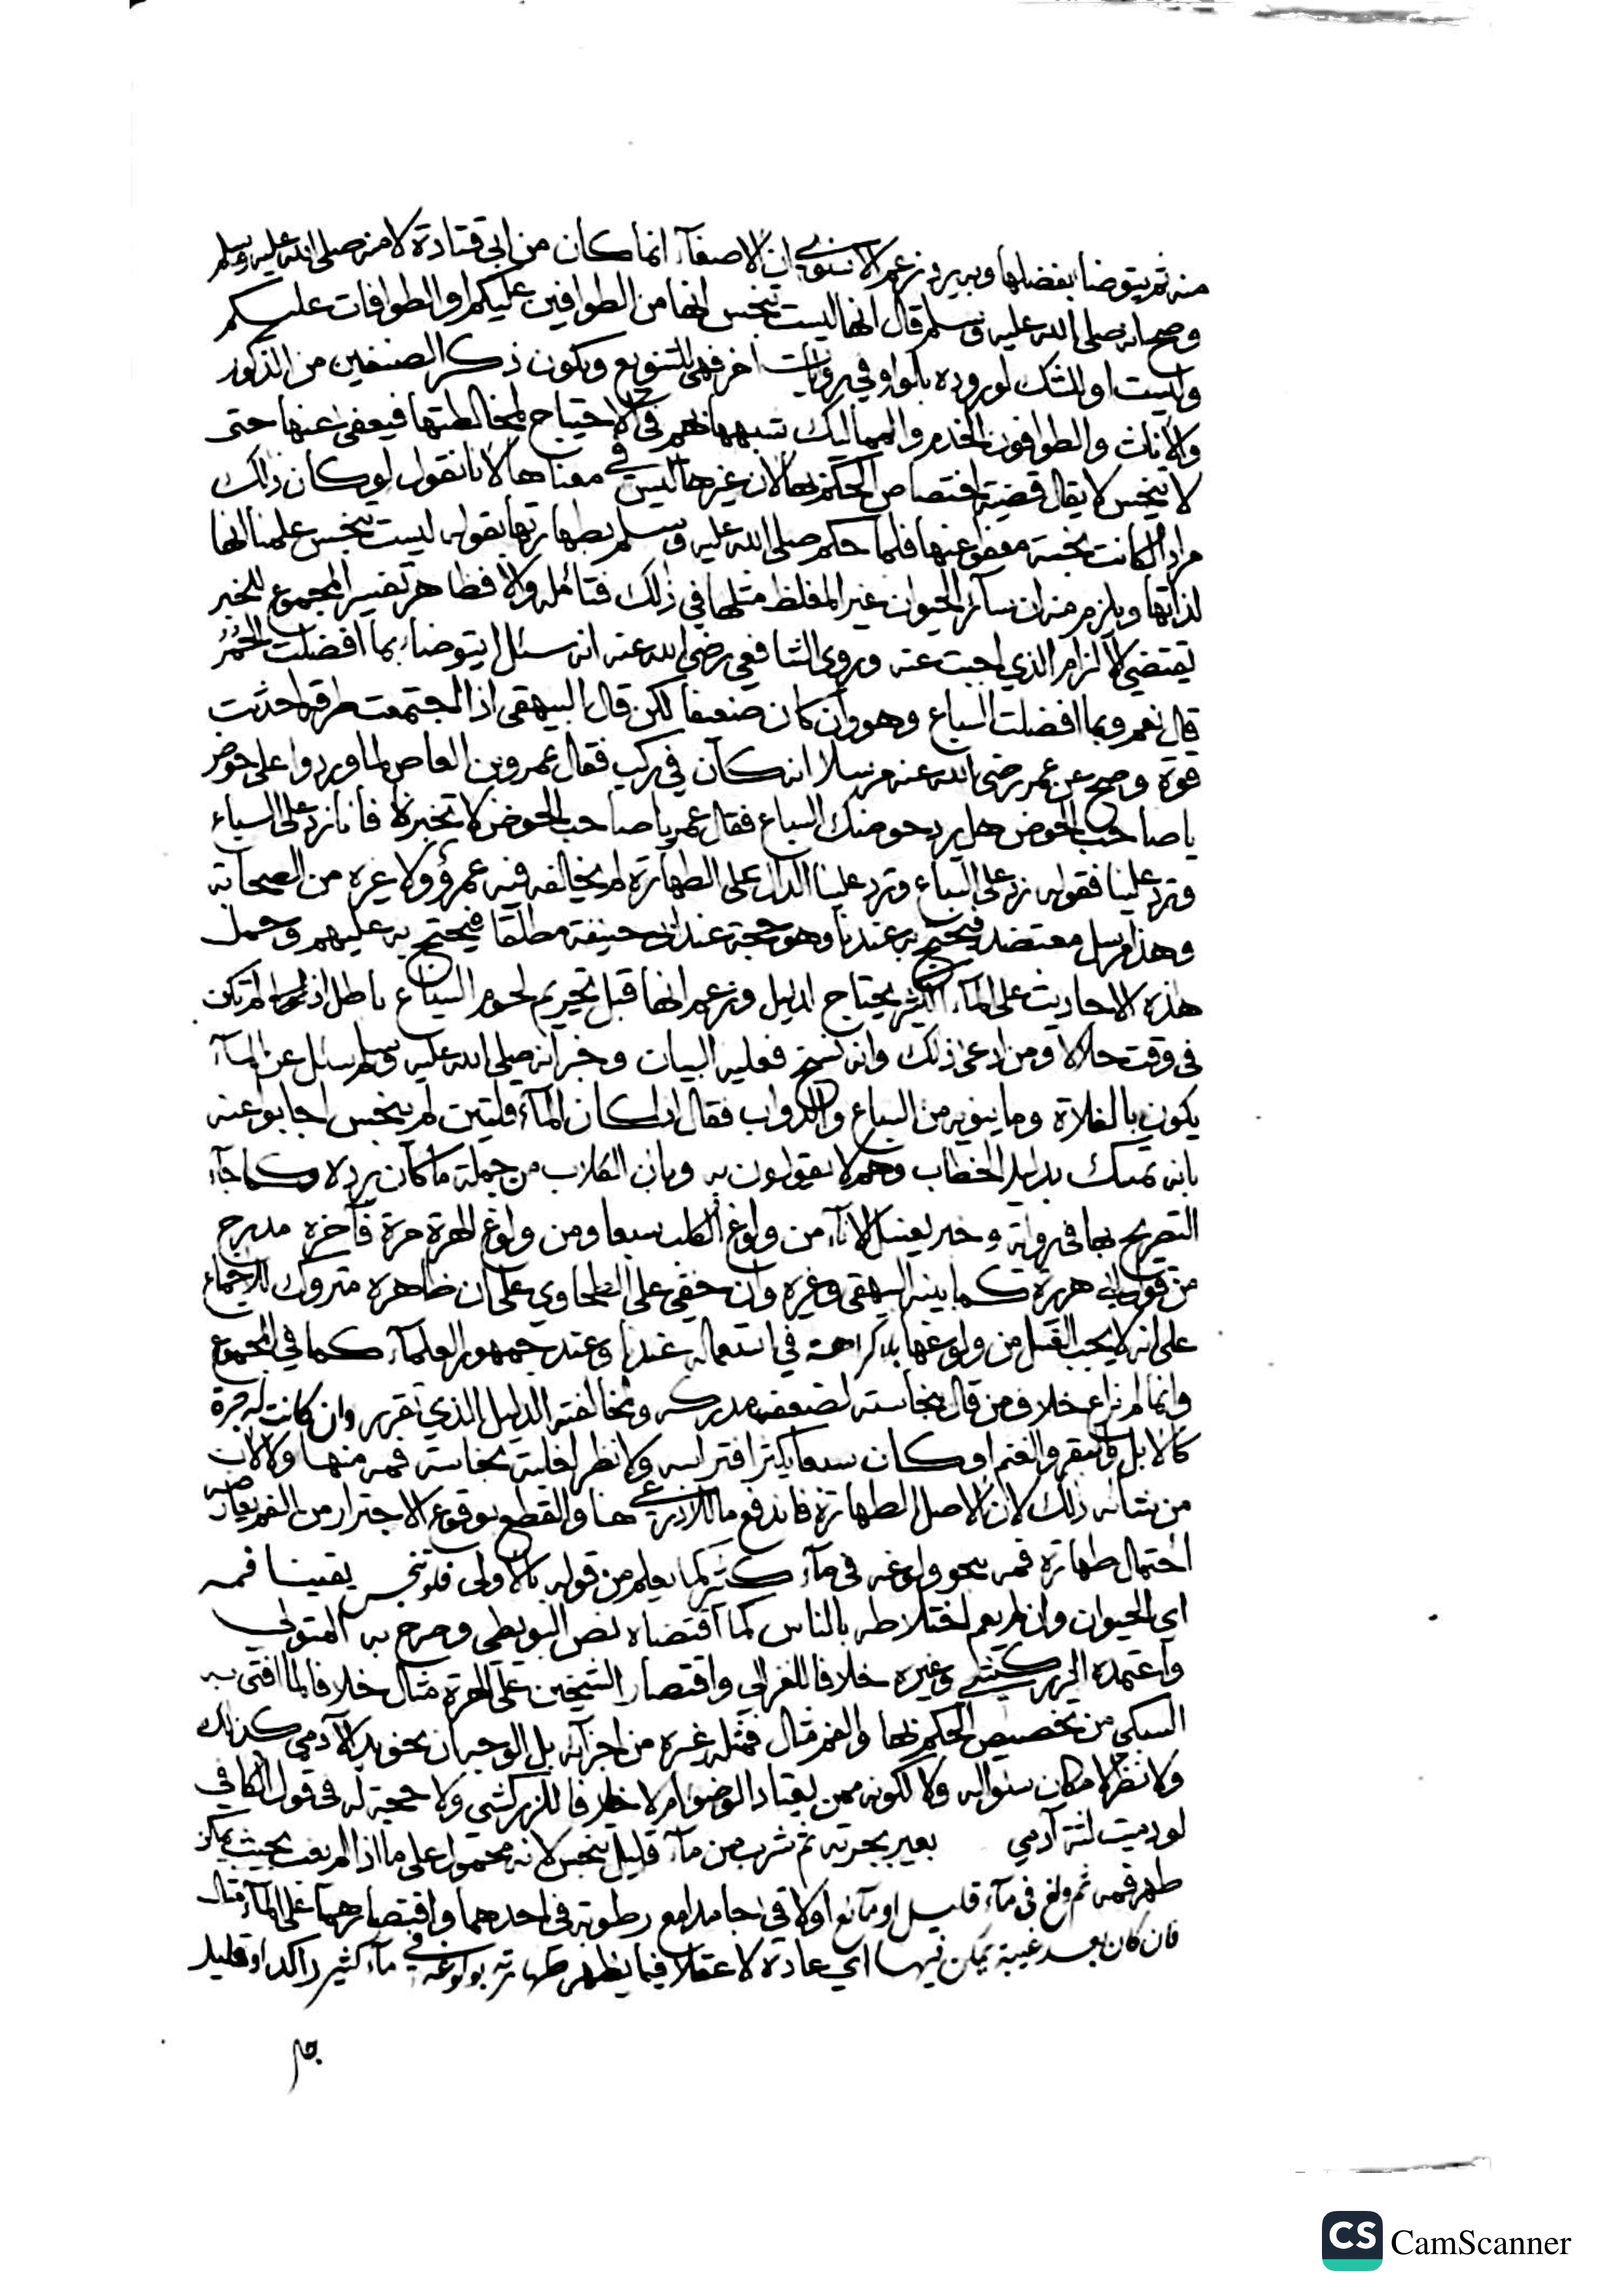 منه ثم يتوضا بفضلها وبه يرد زعم الاسنوي ان الاصغآء انما كان من ابي قتادة لا منه صلى الله عليه وسلم
وصح انه صلى الله عليه وسلم قال انها ليست بنجس انها من الطوافين عليكم او الطوافات عليكم
وليست او للشك لوروده بالواو في روايات اخر فهي للتنويع ويكون ذكر الصنفين من الذكور
والاناث والطوافون الخدم والمماليك شبهها بهم في الاحتياج لمخالطتها فيعفى عنها حتى
لا ينجس لا يقال قضيته اختصاص الحكم بها لان غيرها ليس في معناها لانا نقول لو كان ذلك
مرادا لكانت نجسة معفوا عنها فلما حكم صلى الله عليه وسلم بطهارتها بقوله ليست بنجس علمنا انها
لذاتها ويلزم منه ان سائر الحيوان غير المغلظ مثلها في ذلك فتأمله والا فظاهر تفسير المجموع للخبر
يقتضي الالزام الذي اجبت عنه وروى الشافعي رضي الله عنه انه سئل ايتوضاء بما افضلت الحُمُر
قال نعم وبما افضلت السباع وهو وان كان ضعيفا لكن قال البيهقي اذا اجتمعت طرقه احدثت
قوة وصح عن عمر رضي الله عنه مرسلا انه كان في ركب فقال عمرو بن العاص لما وردوا على حوض
يا صاحب الحوض هل يرد حوضك السباع فقال عمر يا صاحب الحوض لا تخبرنا فانا نرد على السباع
وترد علينا فقوله نرد على السباع وترد علينا الدال على الطهارة لم يخالفه فيه عمرو ولا غيره من الصحابة
وهذا مرسل معتضد فيحتج به عندنا وهو حجة عند ابي حنيفة مطلقا فيحتج به عليهم وحمل
هذه الاحاديث على المآء الكثير يحتاج لدليل وزعم انها قبل تحريم لحوم السباع باطل اذ لم تكن
في وقت حلالا ومن ادعى ذلك وانه نسخ فعليه البيان وخبر انه صلى الله عليه وسلم سئل عن المآء
يكون بالفلاة وما ينوبه من السباع والدواب فقال اذا كان المآء قلتين لم ينجس اجابوا عنه
بانه تمسك بدليل الخطاب وهم لا يقولون به وبان الكلاب من جملة ما كان يرده كما جآء
التصريح بها في رواية وخبر يغسل الانآء من ولوغ الكلب سبعا ومن ولوغ الهرة مرة فآخره مدرج
من قول ابي هريرة كما بينه البيهقي وغيره وان خفي على الطحاوي على ان ظاهره متروك للاجماع
على انه لا يجب الغسل من ولوغها بلا كراهة في استعماله عندنا وعند جمهور العلمآء كما في المجموع
وانما لم نراع خلاف من قال بنجاسته لضعف مدركه ولمخالفته الدليل الذي تقرر وان كانت له جرة
كالابل والبقر والغنم او كان سبعا يكثر افتراسه ولا نظر لغلبة نجاسة فمه منها ولا لان
من شانه ذلك لان الاصل الطهارة فاندفع ما للاذرعي هنا والقطع بوقوع الاجترار من الفم يعارضه
احتمال طهارة فمه بنحو ولوغه في مآء كثير كما يعلم من قوله بالاولى فلو تنجس يقينا فمه
اي الحيوان وان لم يعم اختلاطه بالناس كما اقتضاه نص البويطي وصرح به المتولي
واعتمده الزركشي وغيره خلافا للغزالي واقتصار الشيخين على الهرة مثال خلافا لما افتى به
السبكي من تخصيص الحكم بها والفم مثال فمثله غيره من اجزآئه بل الوجه ان نحو يد الآدمي كذلك
ولا نظر لامكان سؤاله ولا لكونه ممن يعتاد الوضوء ام لا خلافا للزركشي ولا حجة له في قول الكافي
لو دميت لثة آدمي بعير بجرته ثم شرب من مآء قليل نجس لانه محمول على ما اذا لم يغب بحيث يمكن
طهر فمه ثم ولغ في مآء قليل او مآئع او لاقى جامدا مع رطوبة في احدهما واقتصارهما على المآء مثال
فان كان بعد غيبة يمكن فيها اي عادة لا عقلا فيما يظهر طهارته بولوغه في مآء كثير راكد او قليل
CamScanner